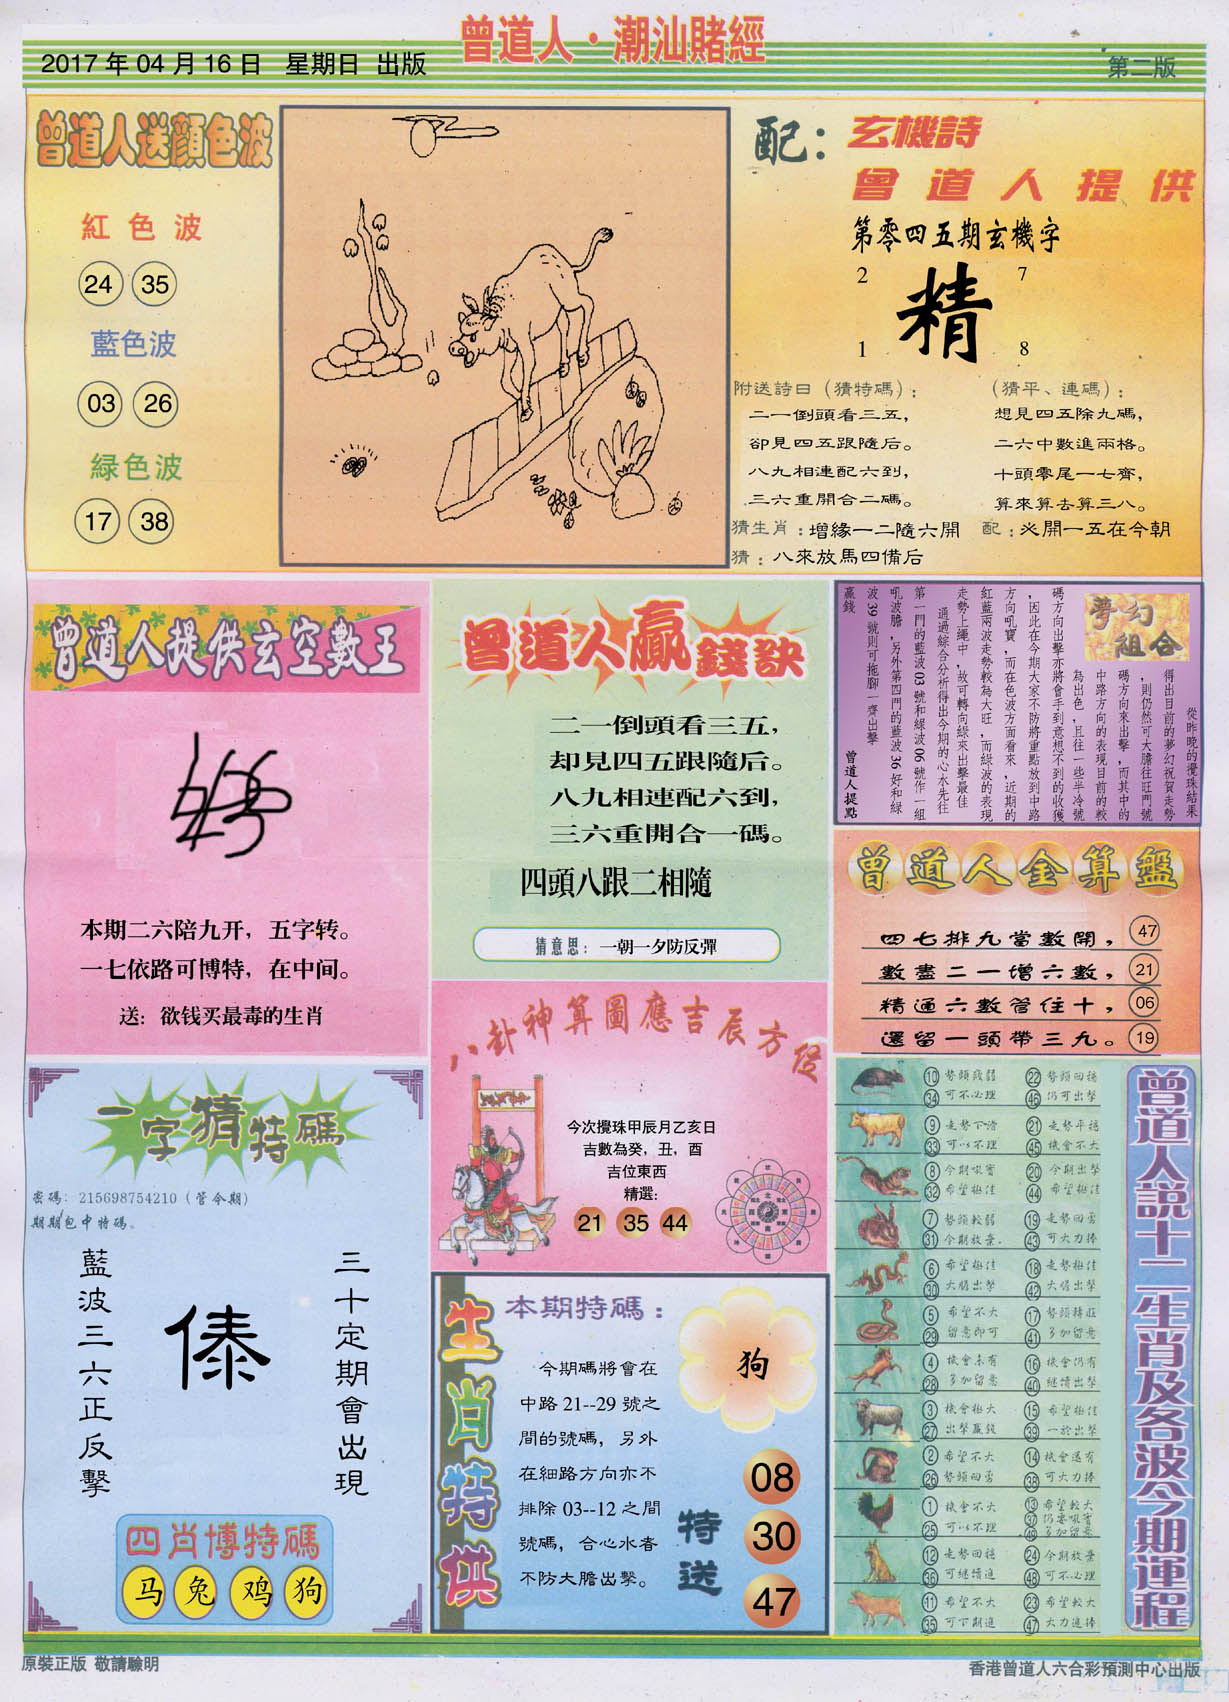 曾道人·潮汕賭經
2017年04月16日 星期日 出版
第二版
曾道人送顏色波
紅色波
24 35
藍色波
03 26
緑色波
17 38
配：玄機詩
曾道人提供
第零四五期玄機字
2 7
精
1 8
附送詩曰（猜特碼）：
二一倒頭看三五，
卻見四五跟隨后。
八九相連配六到，
三六重開合二碼。
（猜平、連碼）：
想見四五除九碼，
二六中數進兩格。
十頭零尾一七齊，
算來算去算三八。
猜生肖：增緣一二隨六開
配：必開一五在今朝
猜：八來放馬四備后
曾道人提供玄空數王
本期二六陪九开，五字转。
一七依路可博特，在中间。
送：欲钱买最毒的生肖
曾道人贏錢訣
二一倒頭看三五，
却見四五跟隨后。
八九相連配六到，
三六重開合一碼。
四頭八跟二相隨
猜意思：一朝一夕防反彈
夢幻組合
從昨晚的攪珠結果
得出目前的夢幻祝賀走勢
，則仍然可大膽往旺門號
碼方向來出擊，而其中的
中路方向的表現目前的較
為出色，且往一些半冷號
碼方向出擊亦將會手到意想不到的收獲
，因此在今期大家不防將重點放到中路
方向吼寶，而在色波方面看來，近期的
紅藍兩波走勢較為大旺，而綠波的表現
走勢上繩中，故可轉向綠來出擊最佳
通過綜合分析得出今期的心水先往
第一門的藍波03號和綠波06號作一組
吼波膽，另外第四門的藍波36好和綠
波39號則可拖腳一齊出擊
贏錢
曾道人提點
曾道人金算盤
四七排九當數開， 47
數盡二一增六數， 21
精通六數管住十， 06
還留一頭帶三九。 19
八卦神算圖應吉辰方位
今次攪珠甲辰月乙亥日
吉數為癸，丑，酉
吉位東西
精選：
21 35 44
一字猜特碼
密碼：215698754210（管今期）
期期包中特碼。
三十定期會出現
傣
藍波三六正反擊
四肖博特碼
马 兔 鸡 狗
生肖特供
本期特碼：
狗
今期碼將會在
中路21--29號之
間的號碼，另外
在細路方向亦不
排除03--12之間
號碼，合心水者
不防大膽出擊。
特送
08
30
47
曾道人說十二生肖及各波今期運程
10 勢頭殘弱 22 勢頭回穩
34 可不必理 46 仍可出擊
9 走勢下滑 21 走勢平穩
33 可以不理 45 機會不大
8 今期吼寶 20 今期出擊
32 希望極佳 44 希望極佳
7 勢頭較弱 19 走勢回勇
31 今期放棄. 43 可大力捧
6 希望極佳 18 走勢極佳
30 大膽出擊 42 大膽出擊
5 希望不大 17 勢頭轉旺
29 留意即可 41 多加留意
4 機會未有 16 機會仍有
28 多加留意 40 繼續出擊
3 機會極大 15 希望極佳
27 出擊贏錢 39 一於出擊
2 希望不大 14 機會還有
26 勢頭回勇 38 可大力捧
1 機會不大 13 希望較大
25 可以不理 37 仍要吼寶
49 多加留意
12 走勢回穩 24 今期放棄
36 可繼續進 48 可不必理
11 希望不大 23 希望較大
35 可下期進 47 大力進捧
原裝正版 敬請驗明
香港曾道人六合彩預測中心出版